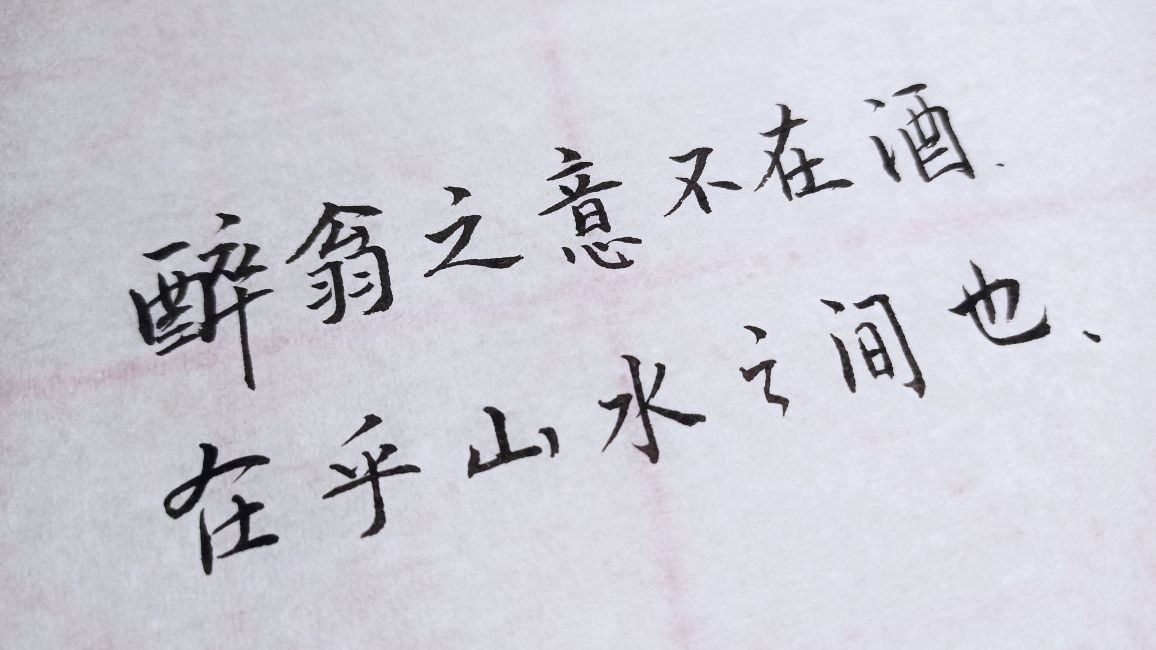 醉翁之意不在酒、
在乎山水之间也、